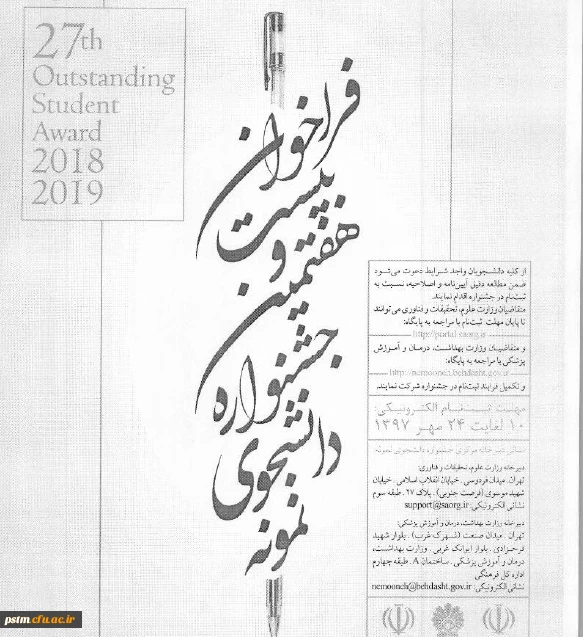 27th
Outstanding
Student
Award
2018
2019
فراخوان
بیست
و
هفتمین
جشنواره
دانشجوی
نمونه
از کلیه دانشجویان واجد شرایط دعوت می‌شود
ضمن مطالعه دقیق آیین‌نامه و اصلاحیه، نسبت به
ثبت‌نام در جشنواره اقدام نمایند.
متقاضیان وزارت علوم، تحقیقات و فناوری می‌توانند
تا پایان مهلت ثبت‌نام با مراجعه به پایگاه:
http://portal.saorg.ir
و متقاضیان وزارت بهداشت، درمان و آموزش
پزشکی با مراجعه به پایگاه:
http://nemooneh.behdasht.gov.ir
و تکمیل فرایند ثبت‌نام در جشنواره شرکت نمایند.
مهلت ثبت‌نام الکترونیکی:
۱۰ لغایت ۲۴ مهر ۱۳۹۷
نشانی دبیرخانه مرکزی جشنواره دانشجوی نمونه
دبیرخانه وزارت علوم، تحقیقات و فناوری:
تهران. میدان فردوسی. خیابان انقلاب اسلامی. خیابان
شهید موسوی (فرصت جنوبی). پلاک ۲۷. طبقه سوم
نشانی الکترونیکی: support@saorg.ir
دبیرخانه وزارت بهداشت، درمان و آموزش پزشکی:
تهران. میدان صنعت (شهرک غرب). بلوار شهید
فرحزادی. بلوار ایوانک غربی. وزارت بهداشت،
درمان و آموزش پزشکی. ساختمان A. طبقه چهارم
اداره کل فرهنگی
نشانی الکترونیکی: nemooneh@behdasht.gov.ir
pstm.cfu.ac.ir